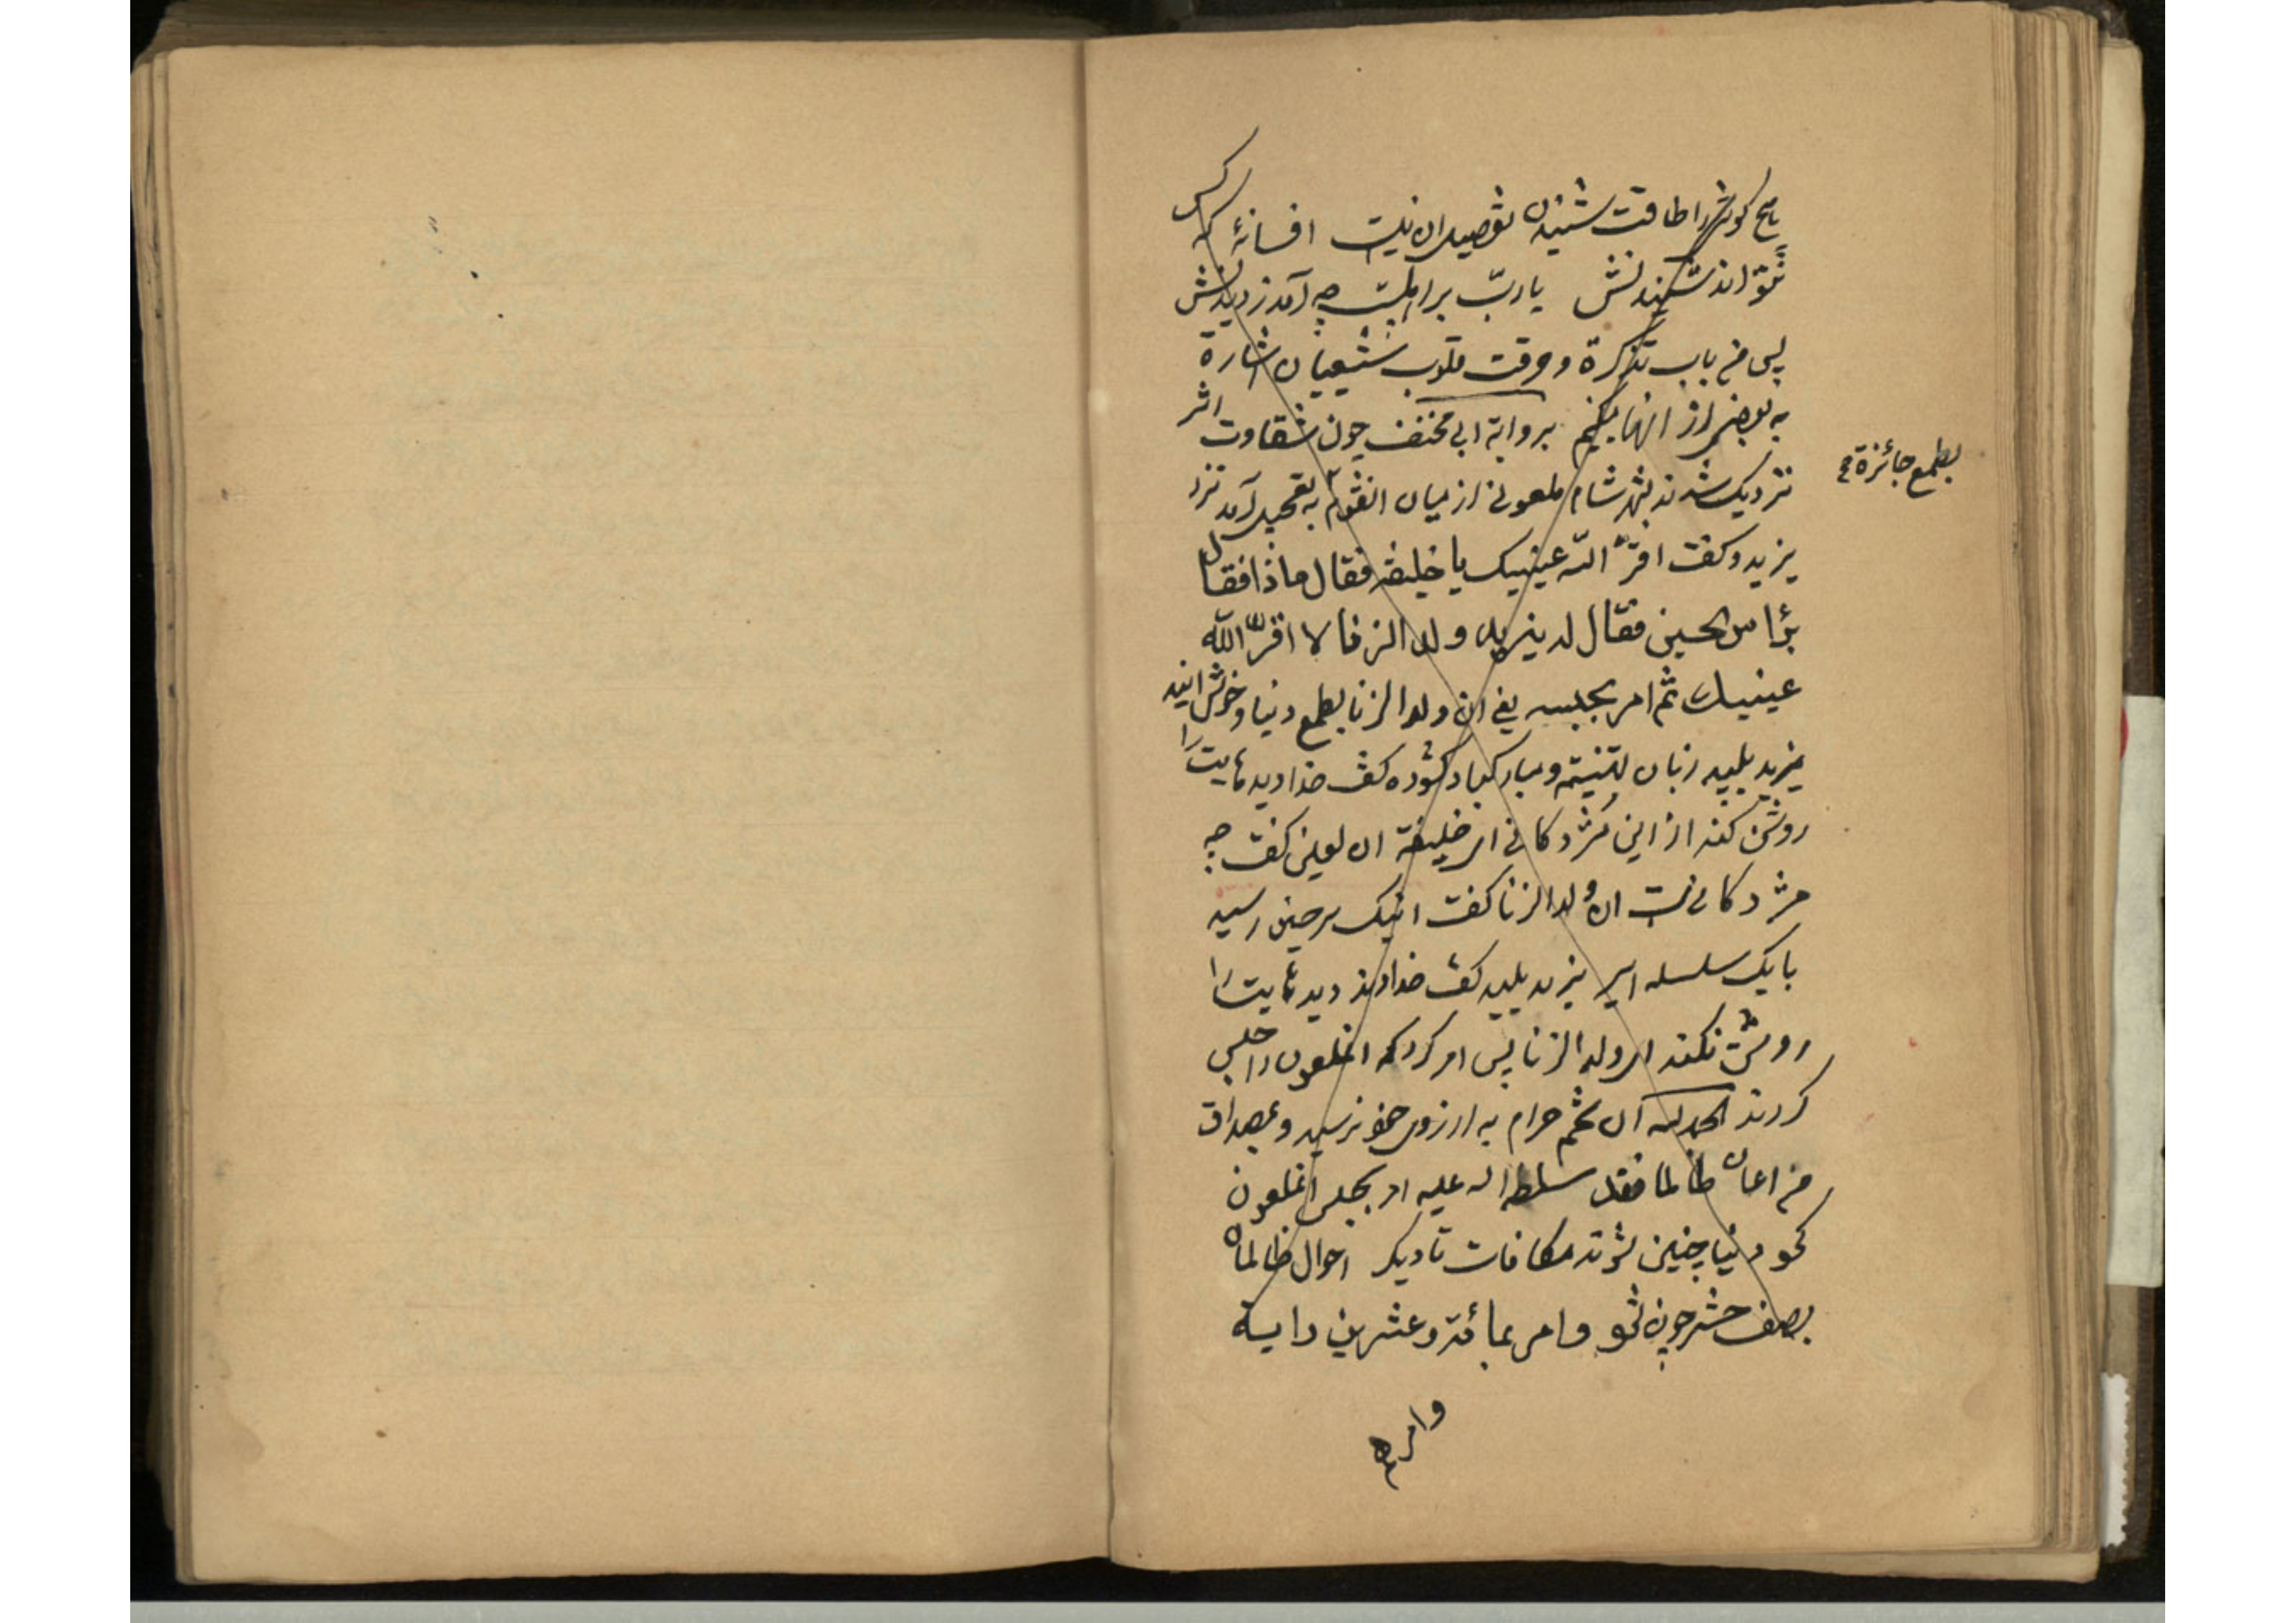 هیچ گوش را طاقت شنیدن تفصیل آن نیست افسانهٔ که کس
نتواند شنیدنش یا ربّ بر اهلبیت چه آمد ز دیدنش
پس من باب تذکرة و حرقت قلوب شیعیان اشارة
به بعضی از انها میکنیم بروایة ابی مخنف چون شقاوت اثر
نزدیک شدند بشهر شام ملعونی از میان انقوم به تعجیل آمد نزد
بطمع جائزة
یزید و کفت اقرّ الله عینیک یا خلیفه فقال ماذا فقال
برٔاس الحسین فقال له یزید ولد الزنا لا اقرّ الله
عینیک ثم امر بحبسه یعنی ان ولد الزنا بطمع دنیا و خوش ایند
یزید پلید زبان بتهنیت و مبارکباد کشوده کفت خدا دیدهایت را
روشن کند از این مژدکانی ای خلیفة ان لعین کفت چه
مژدکانیست ان ولد الزنا کفت اینک سر حسین رسید
با یک سلسله اسیر یزید پلید کفت خداوند دیدهایت را
روشن نکند ای ولد الزنا پس امر کرد که انملعون را حبس
کردند الحمد لله آن تخم حرام به ارزوی خود نرسید و بمصداق
من اعان ظالما فقد سلطه الله علیه امر بحبس انملعون
نمود دنیا چنین شوند مکافات تا دیکر احوال ظالمان
بصف حشر چون شود وامر بمائة وعشرین رایة
وامرهم